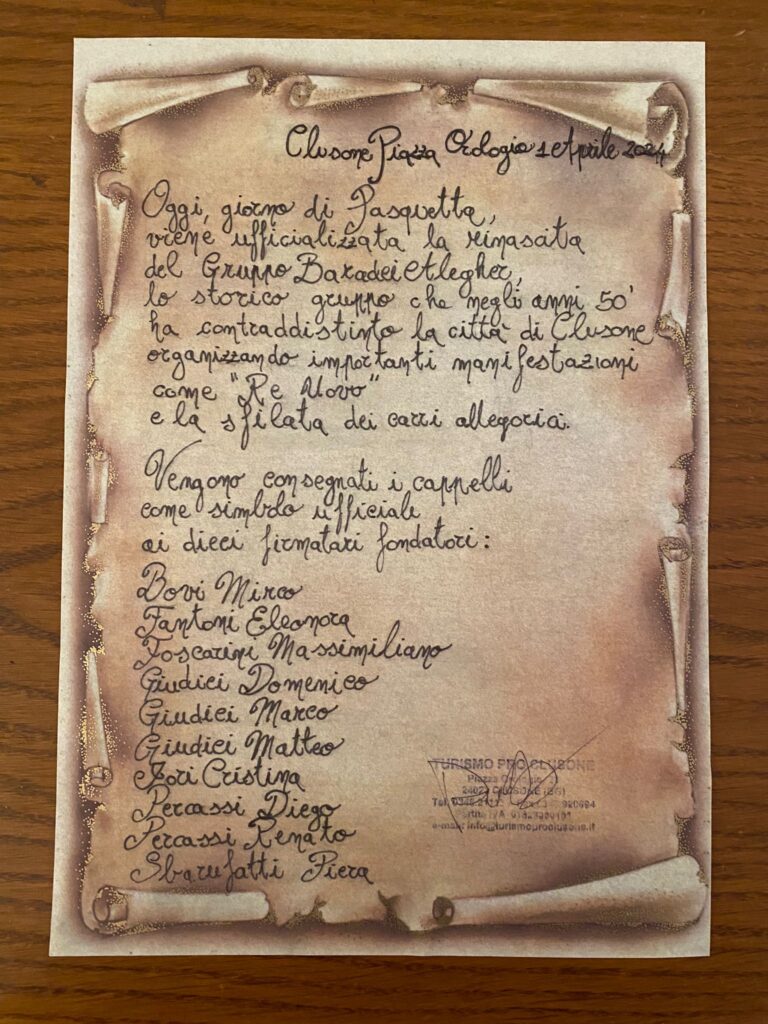 Clusone Piazza Orologio 1 Aprile 2024
Oggi, giorno di Pasquetta,
viene ufficializzata la rinascita
del Gruppo Baradei Alegher,
lo storico gruppo che negli anni 50'
ha contraddistinto la città di Clusone
organizzando importanti manifestazioni
come "Re Uovo"
e la sfilata dei carri allegorici.
Vengono consegnati i cappelli
come simbolo ufficiale
ai dieci firmatari fondatori:
Bovi Mirco
Fantoni Eleonora
Foscarini Massimiliano
Giudici Domenico
Giudici Marco
Giudici Matteo
Cristina
Percassi Diego
Percassi Renato
Sbarufatti Piera
TURISMO PRO CLUSONE
Piazza
24023 CLUSONE (BG)
Tel. 0346
Partita IVA
e-mail: info@turismoproclusone.it